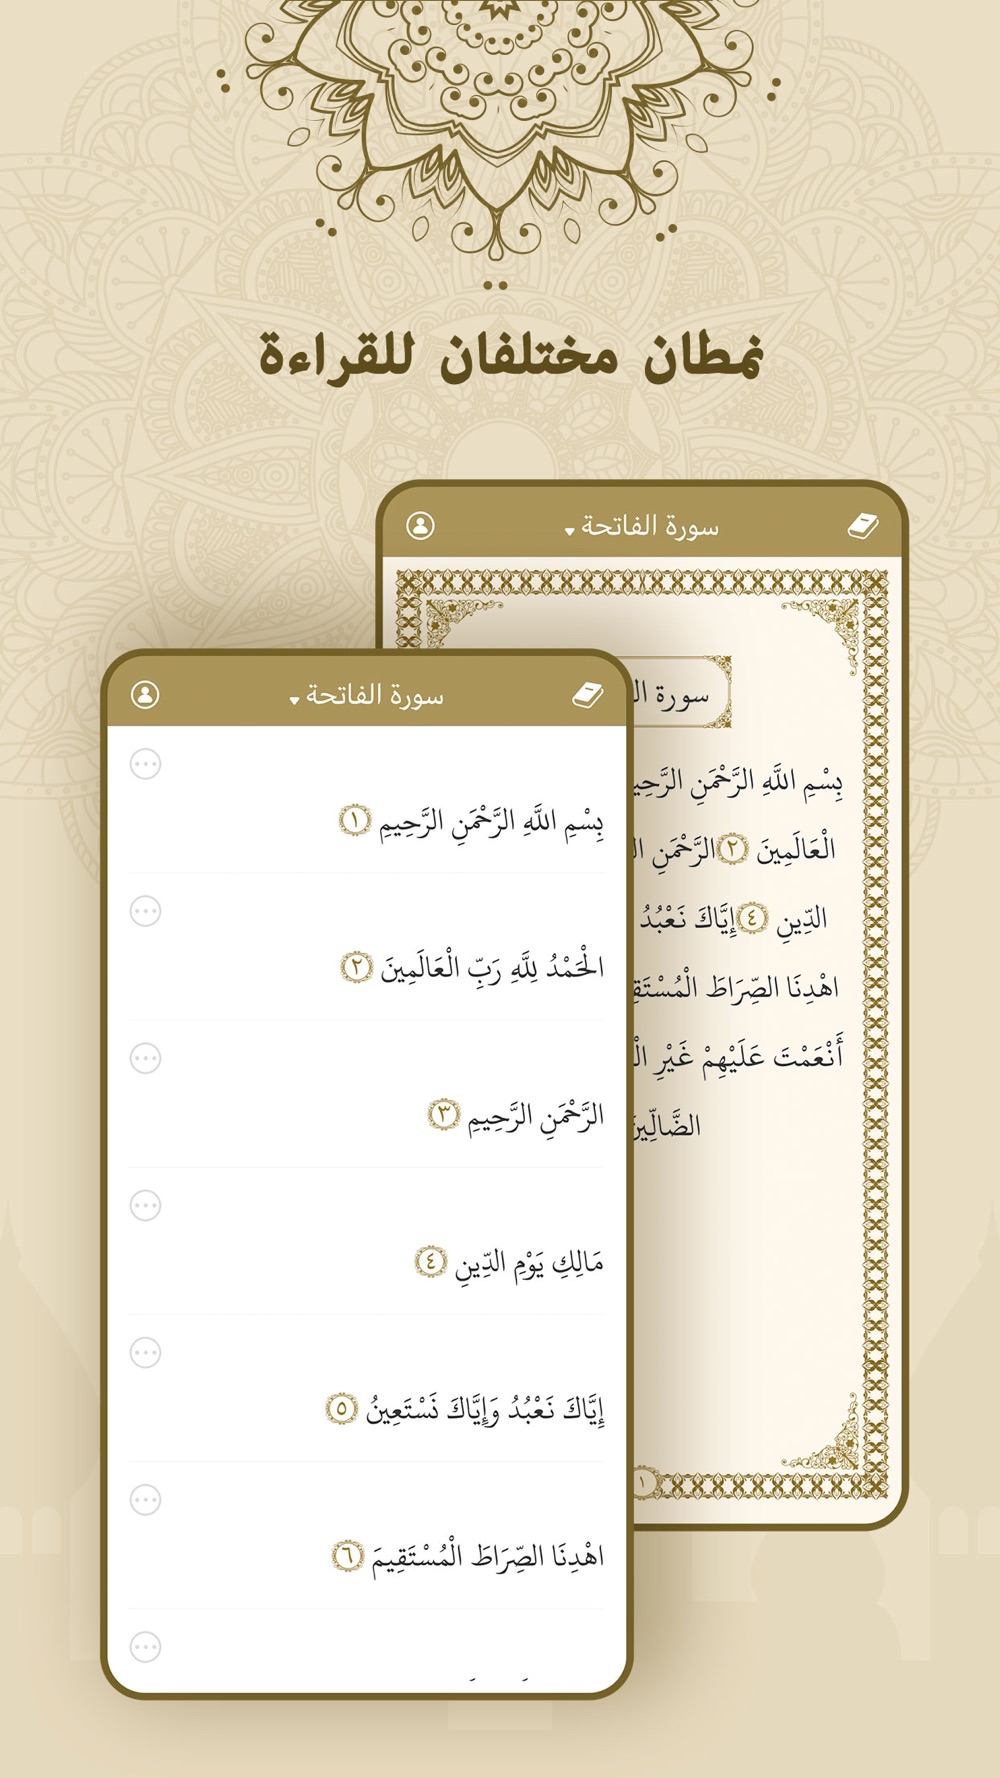 نمطان مختلفان للقراءة
سورة الفاتحة
سورة
بِسْمِ اللَّهِ الرَّحْمَنِ
الْعَالَمِينَ ٢ الرَّحْمَنِ
الدِّينِ ٤ إِيَّاكَ نَعْبُدُ
اهْدِنَا الصِّرَاطَ
أَنْعَمْتَ عَلَيْهِمْ غَيْرِ
١
سورة الفاتحة
بِسْمِ اللَّهِ الرَّحْمَنِ الرَّحِيمِ ١
الْحَمْدُ لِلَّهِ رَبِّ الْعَالَمِينَ ٢
الرَّحْمَنِ الرَّحِيمِ ٣
مَالِكِ يَوْمِ الدِّينِ ٤
إِيَّاكَ نَعْبُدُ وَإِيَّاكَ نَسْتَعِينُ ٥
اهْدِنَا الصِّرَاطَ الْمُسْتَقِيمَ ٦